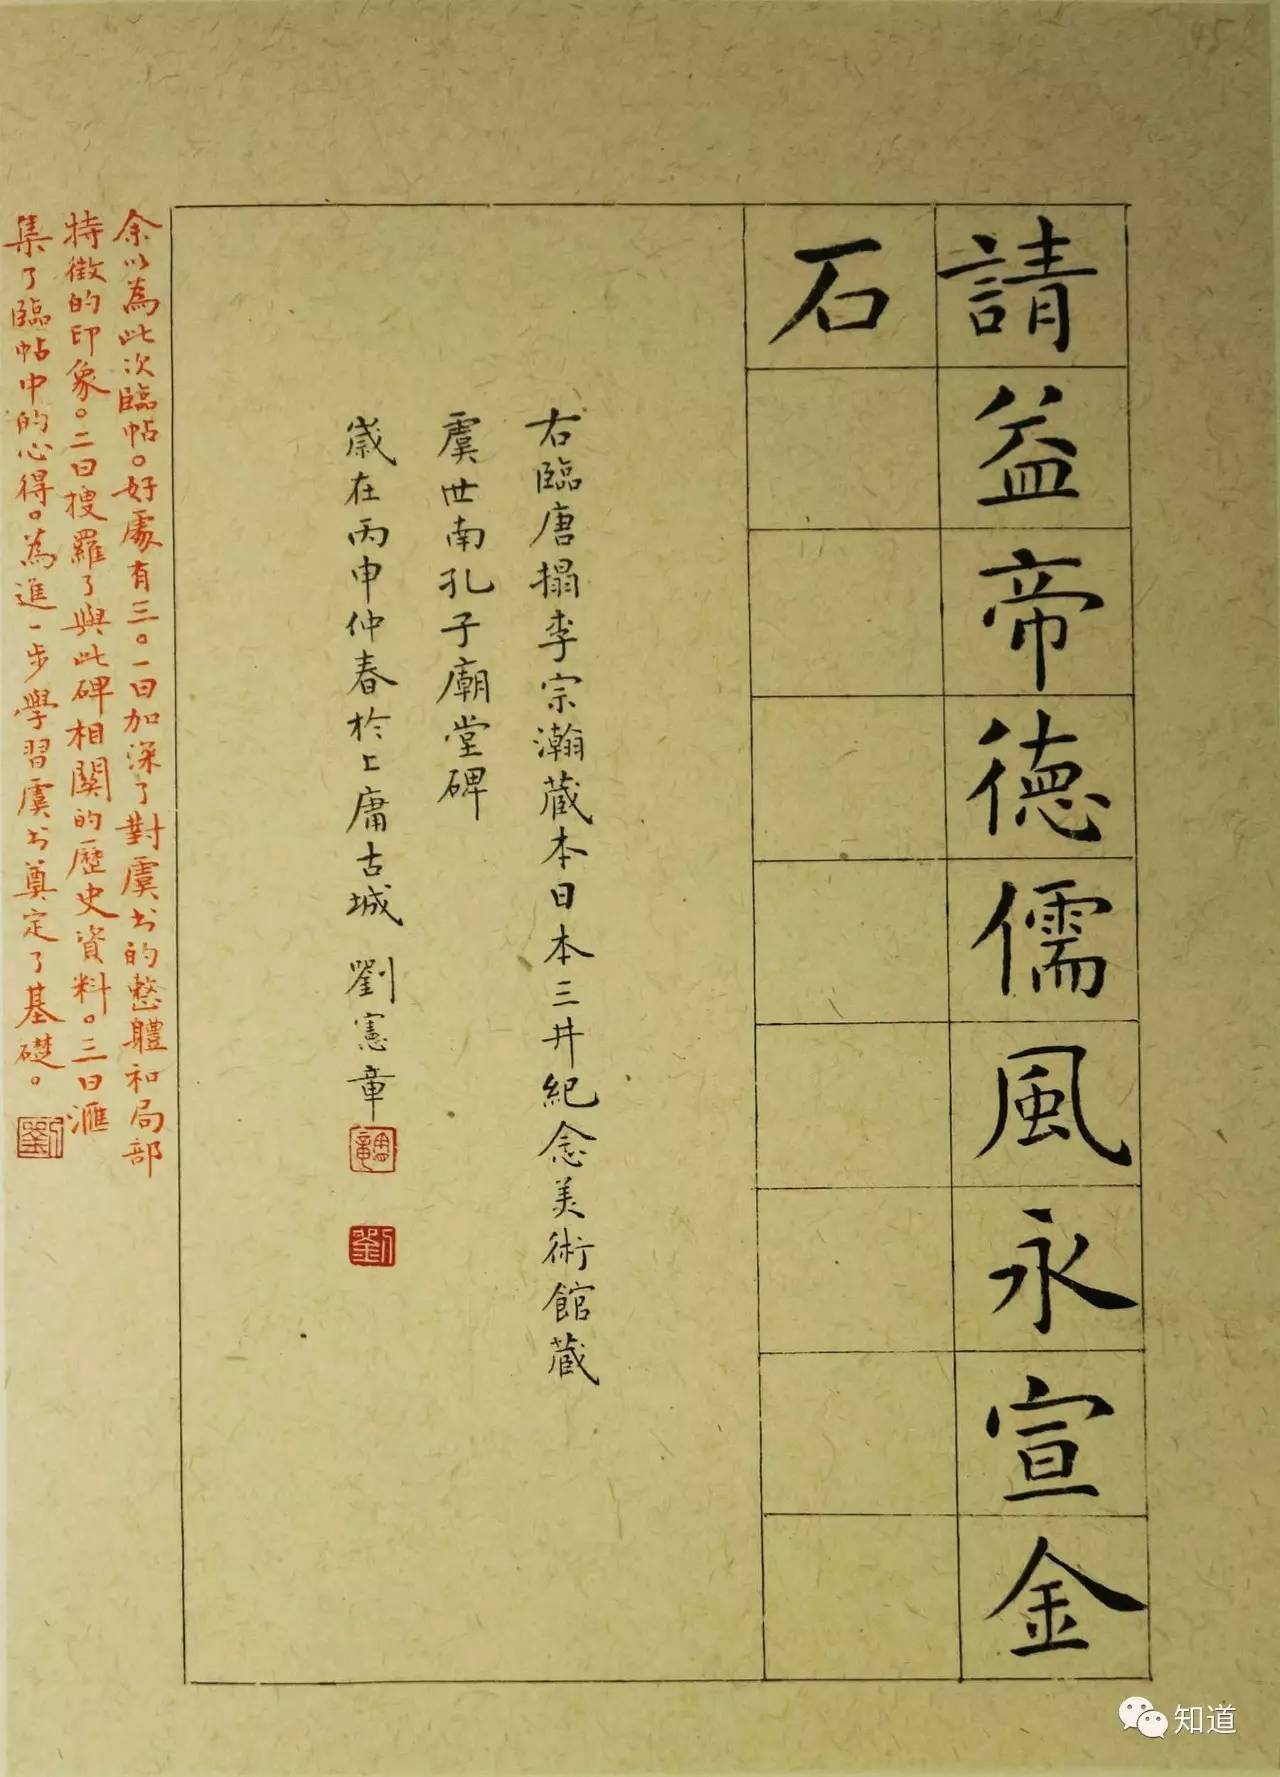 請益帝德儒風永宣金
石
右臨唐搨李宗瀚藏本日本三井紀念美術館藏
虞世南孔子廟堂碑
歲在丙申仲春於上庸古城 劉憲章
劉
余以為此次臨帖。好處有三。一曰加深了對虞书的整體和局部
特徵的印象。二曰搜羅了與此碑相關的歷史資料。三曰滙
集了臨帖中的心得。為進一步學習虞书奠定了基礎。
劉
知道